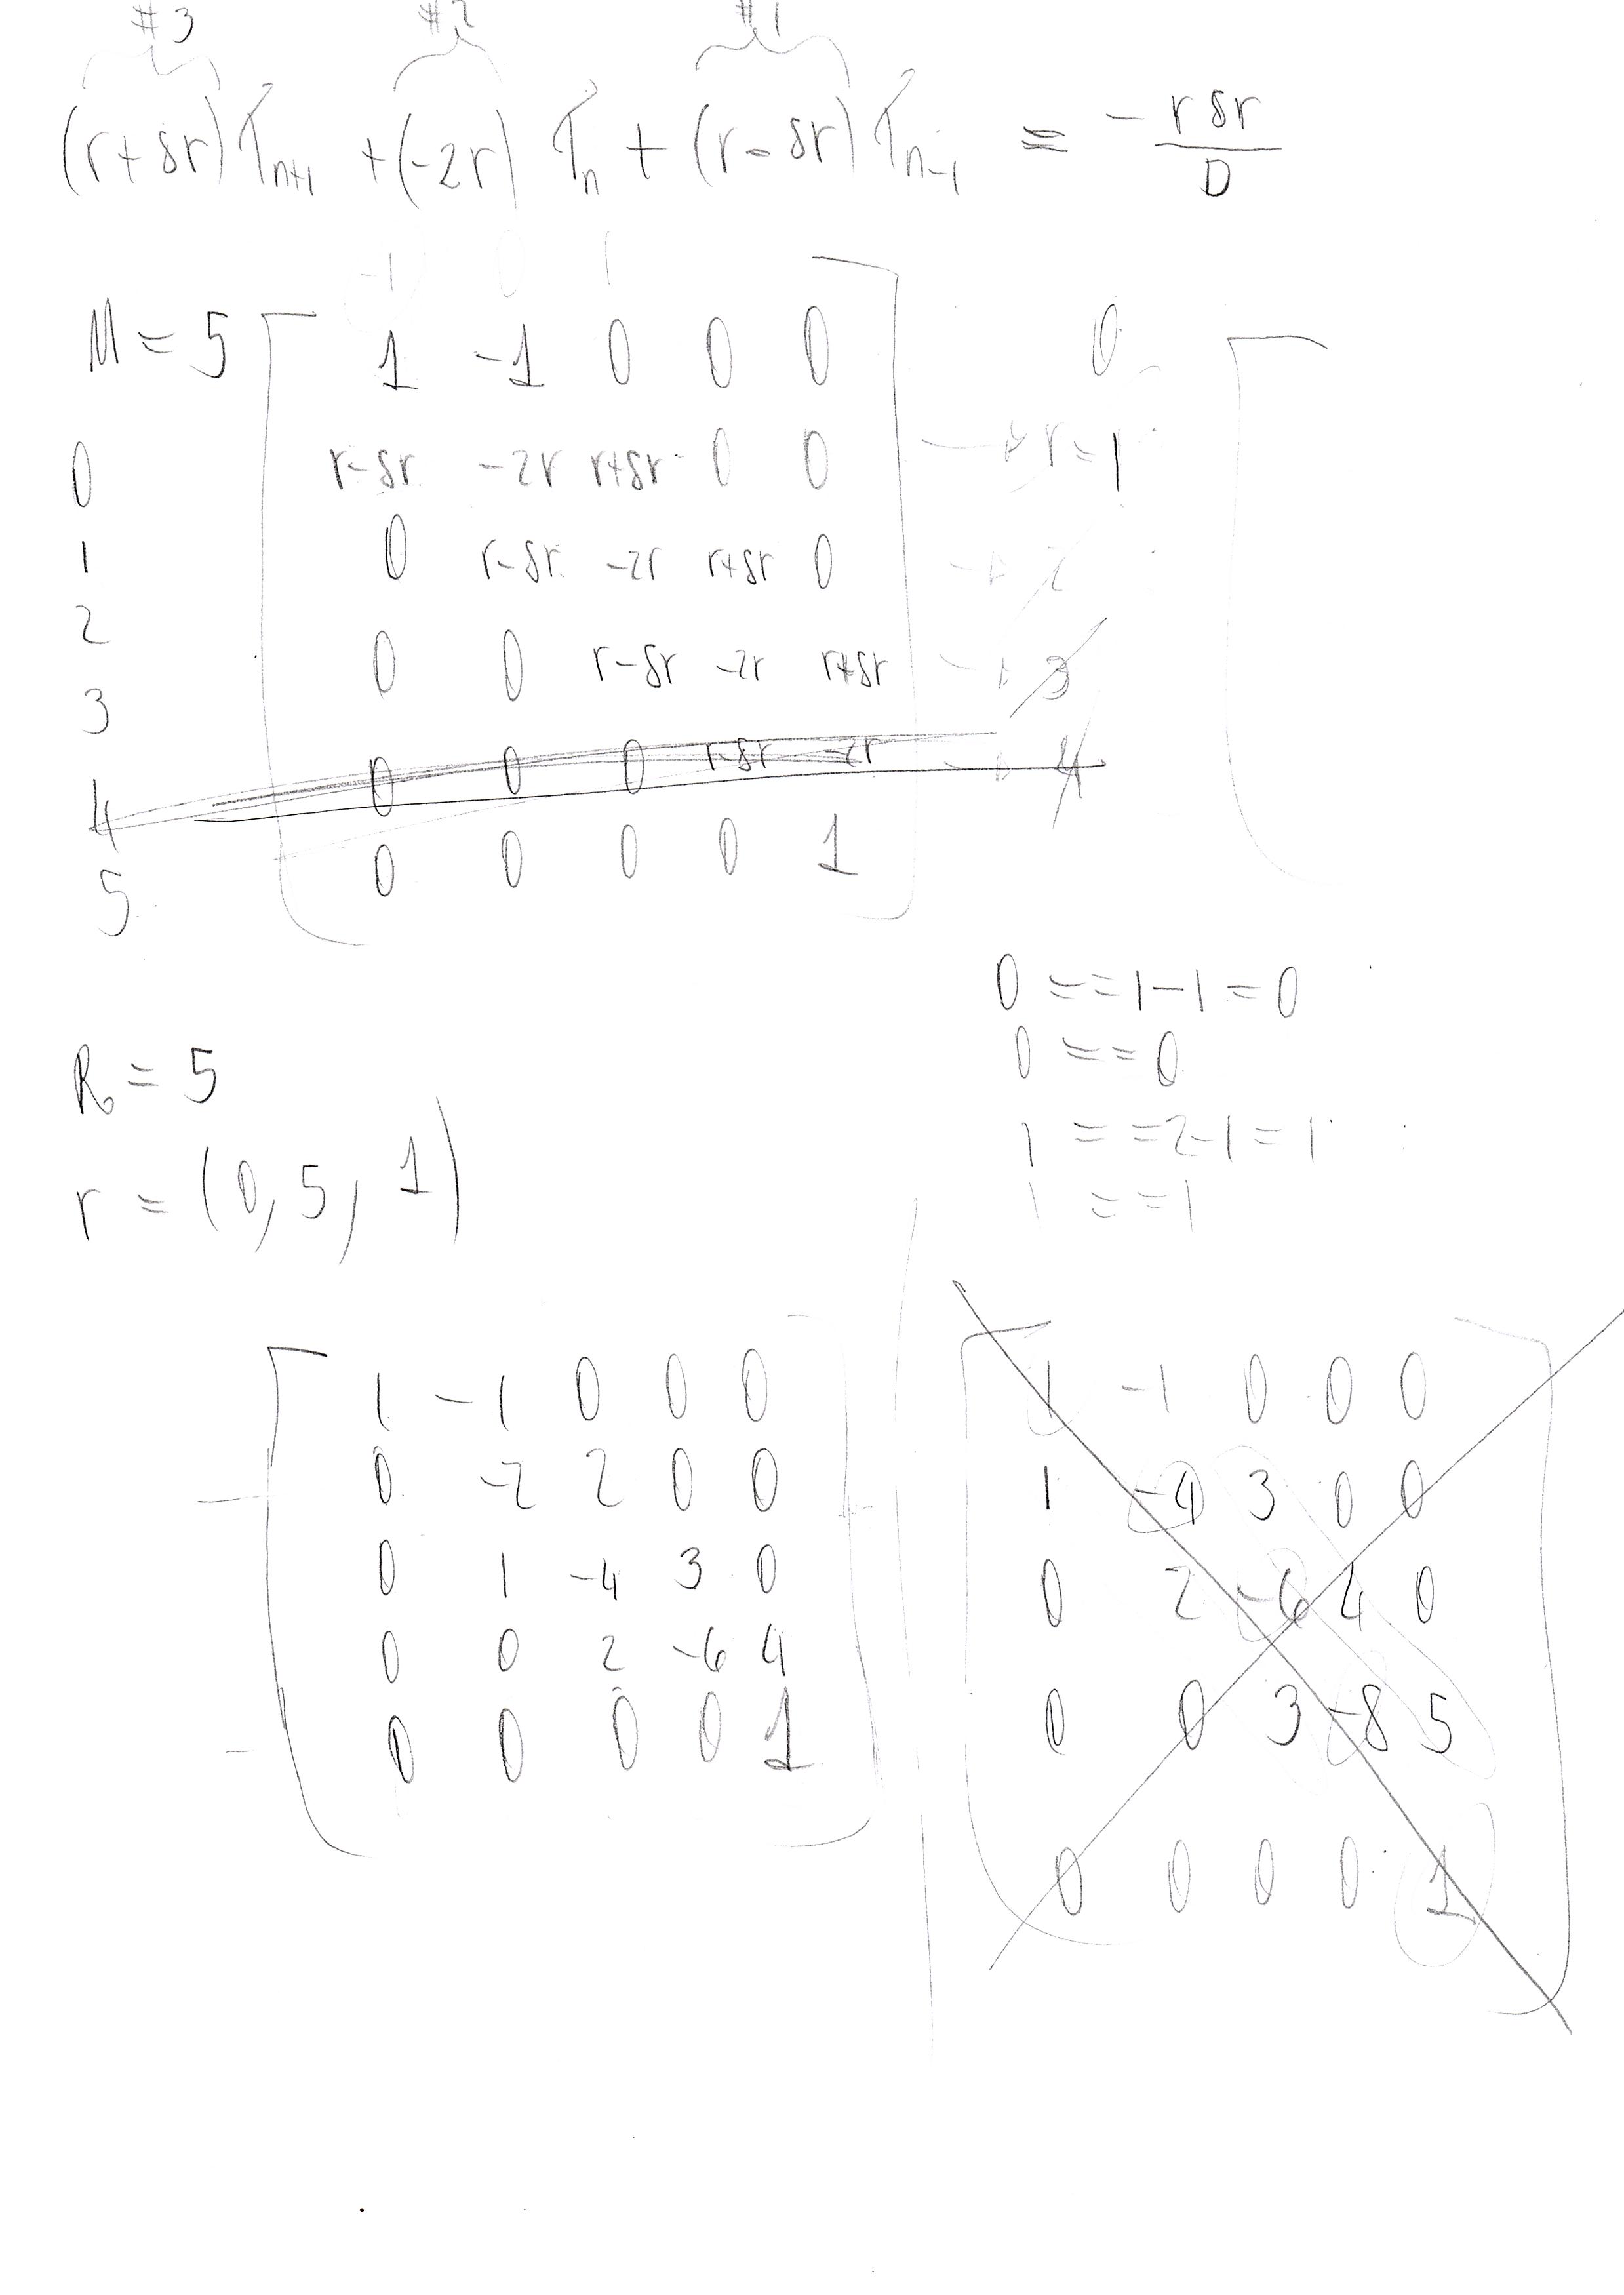 #3 #2 #1
(r+δr) T_{n+1} + (-2r) T_n + (r-δr) T_{n-1} = - rδr / D
-1 0 1
M = 5 1 -1 0 0 0 0
0 r-δr -2r r+δr 0 0 → r=1
1 0 r-δr -2r r+δr 0 → 2
2
3 0 0 r-δr -2r r+δr → 3
4 0 0 0 r-δr -2r → 4
5 0 0 0 0 1
0 == 1-1 = 0
0 == 0
1 == 2-1 = 1
1 == 1
R = 5
r = (0, 5, 1)
1 -1 0 0 0
0 -2 2 0 0
0 1 -4 3 0
0 0 2 -6 4
0 0 0 0 1
1 -1 0 0 0
1 -4 3 0 0
0 2 -6 4 0
0 0 3 -8 5
0 0 0 0 1